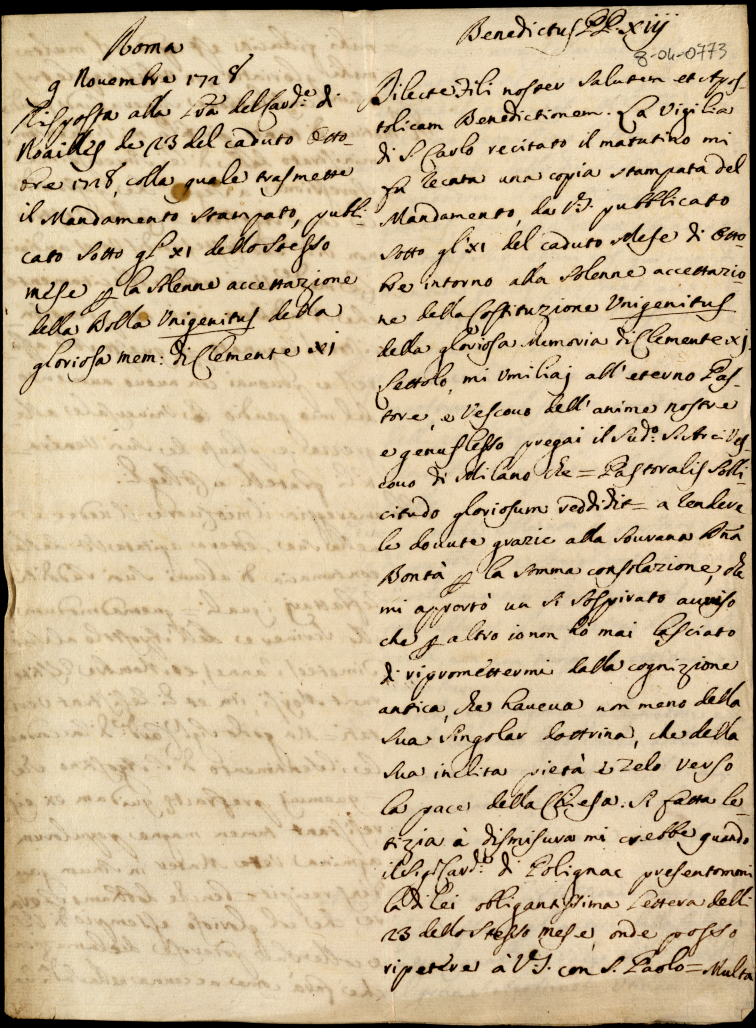 Roma
9 Novembre 1728
Risposta alla Lra del Card.e di
Noailles de 23 del caduto Otto-
bre 1728, colla quale trasmette
il Mandamento stampato, publi-
cato sotto gl' XI dello stesso
mese p la solenne accettazione
della Bolla Unigenitus della
gloriosa mem: di Clemente XI
Benedictus PP. XIII
8-04-0773
Dilecte Fili noster salutem et Apos-
tolicam Benedictionem. La Vigilia
di S. Carlo recitato il matutino mi
fu recata una copia stampata del
Mandamento, da VS. pubblicato
sotto gl' XI del caduto Mese di Otto
bre intorno alla solenne accettazio-
ne della Costituzione Unigenitus
della gloriosa Memoria di Clemente XI
Lettolo, mi umiliai all' eterno Pas-
tore, e Vescovo dell' anime nostre
e genuflesso pregai il Sud.o S. Arcives-
covo di Milano che = Pastoralis Solli
citudo gloriosum reddidit = a rendere
le dovute grazie alla sovrana Dna
Bontà p la somma consolazione, che
mi apportò un sì sospirato auviso
che p altro io non hò mai lasciato
di ripromettermi dalla cognizione
antica, che haveva non meno della
sua singolar dottrina, che della
sua inclita pietà e zelo verso
la pace della Chiesa. Si fatta le-
tizia à dismisura mi crebbe quando
il Sig.r Card.e di Polignac presentommi
la di lei obligantissima Lettera delli
23 dello stesso mese, onde posso
ripetere à VS. con S. Paolo = Multa